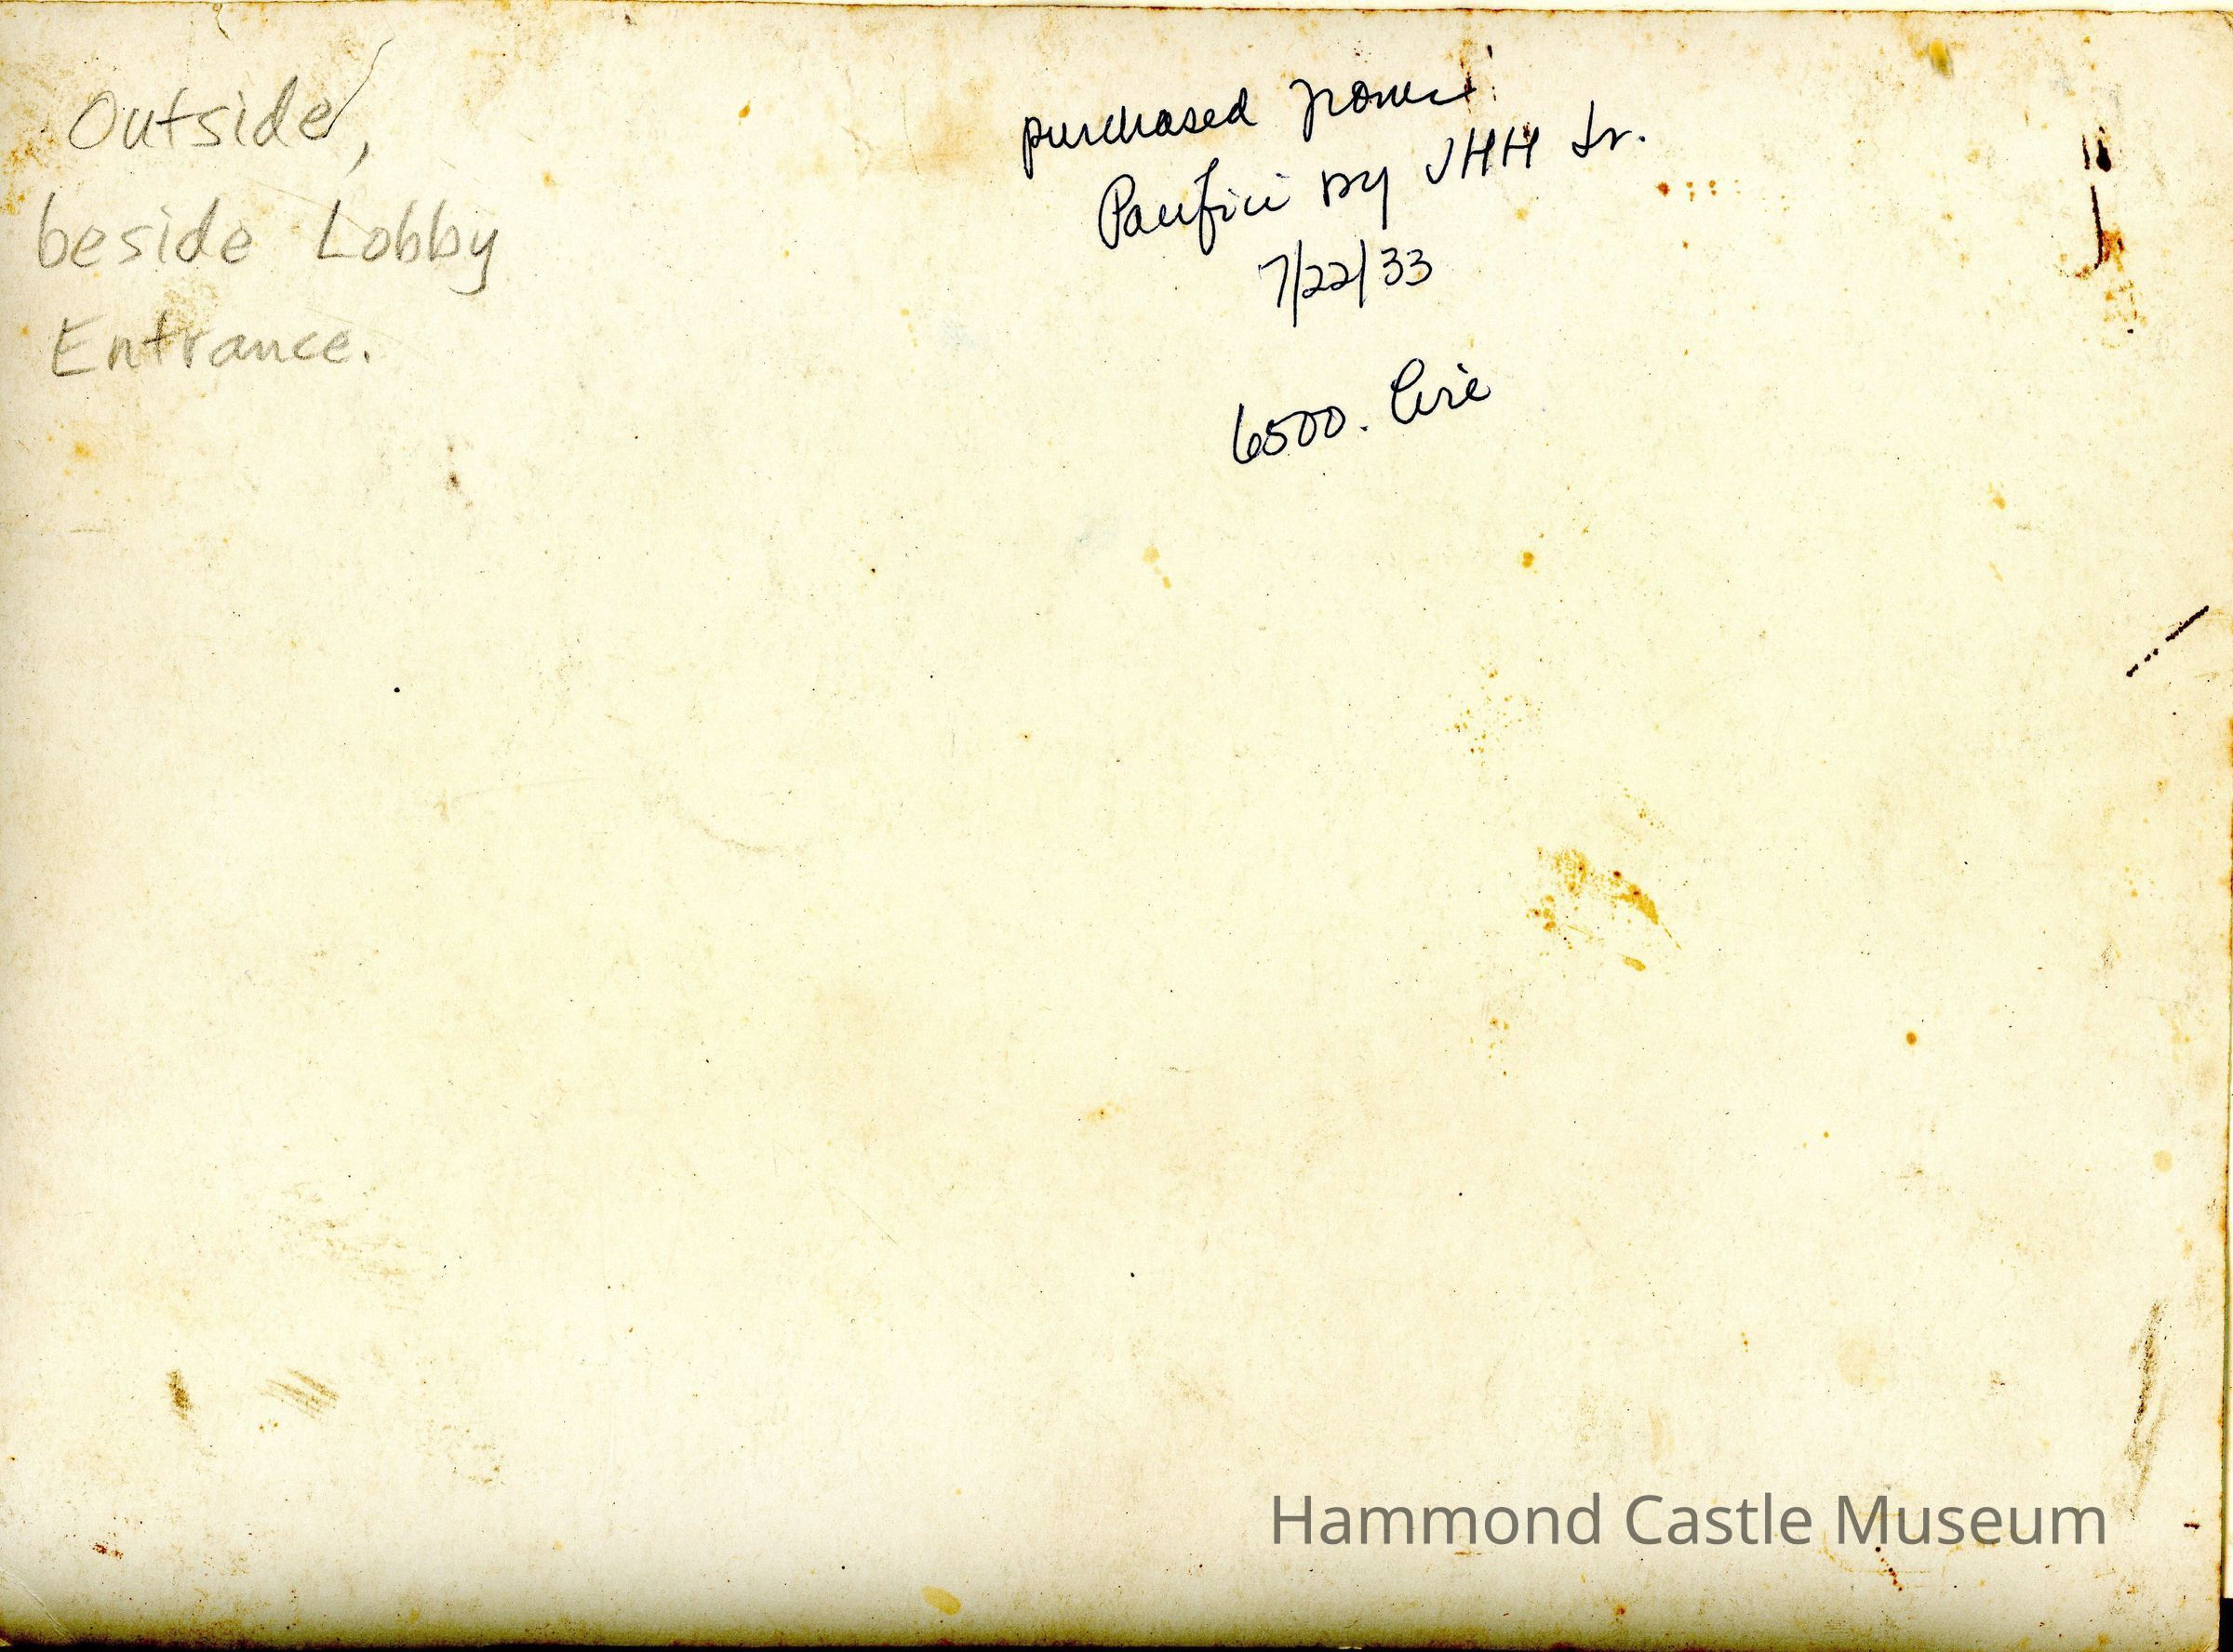 Outside,
beside Lobby
Entrance.
purchased from
Pacifici by JHH Jr.
7/22/33
6500. lire
Hammond Castle Museum